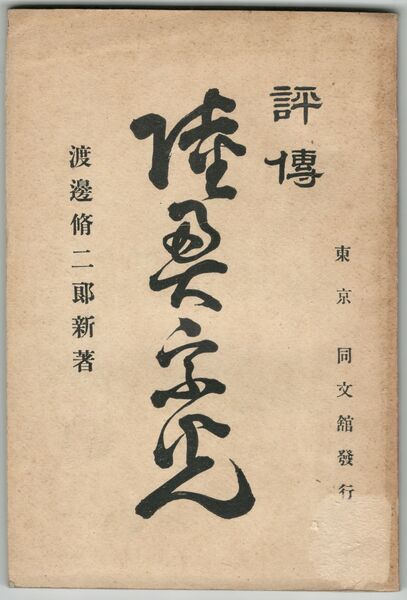 評傳
陸奥宗光
渡邊脩二郎新著
東京 同文舘發行